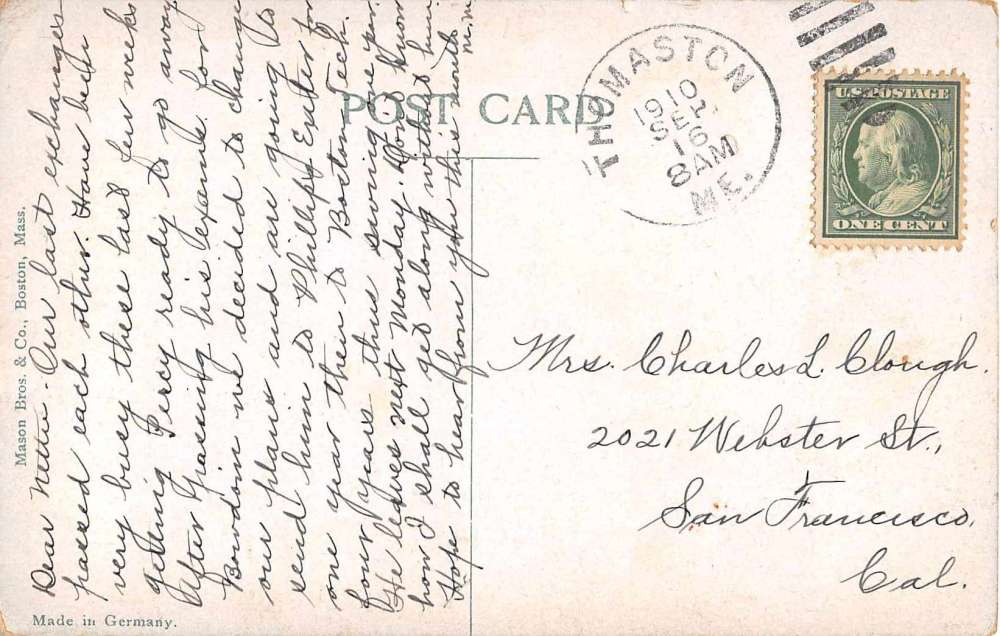 Dear Nettie. Our last exchanges
passed each other. Have been
very busy these last few weeks
getting Percy ready to go away
After passing his exams. for
Bowdoin we decided to change
our plans and are going to
send him to Phillips Exeter for
one year then to Boston Tech.
four years thus saving one yr.
He leaves next Monday. Don't know
how I shall get along without him.
Hope to hear from you this month
M.W.
POST CARD
THOMASTON
1910
SEP
16
8 AM
ME.
U.S. POSTAGE
ONE CENT
Mrs. Charles L. Clough.
2021 Webster St.,
San Francisco.
Cal.
Mason Bros. & Co., Boston, Mass.
Made in Germany.